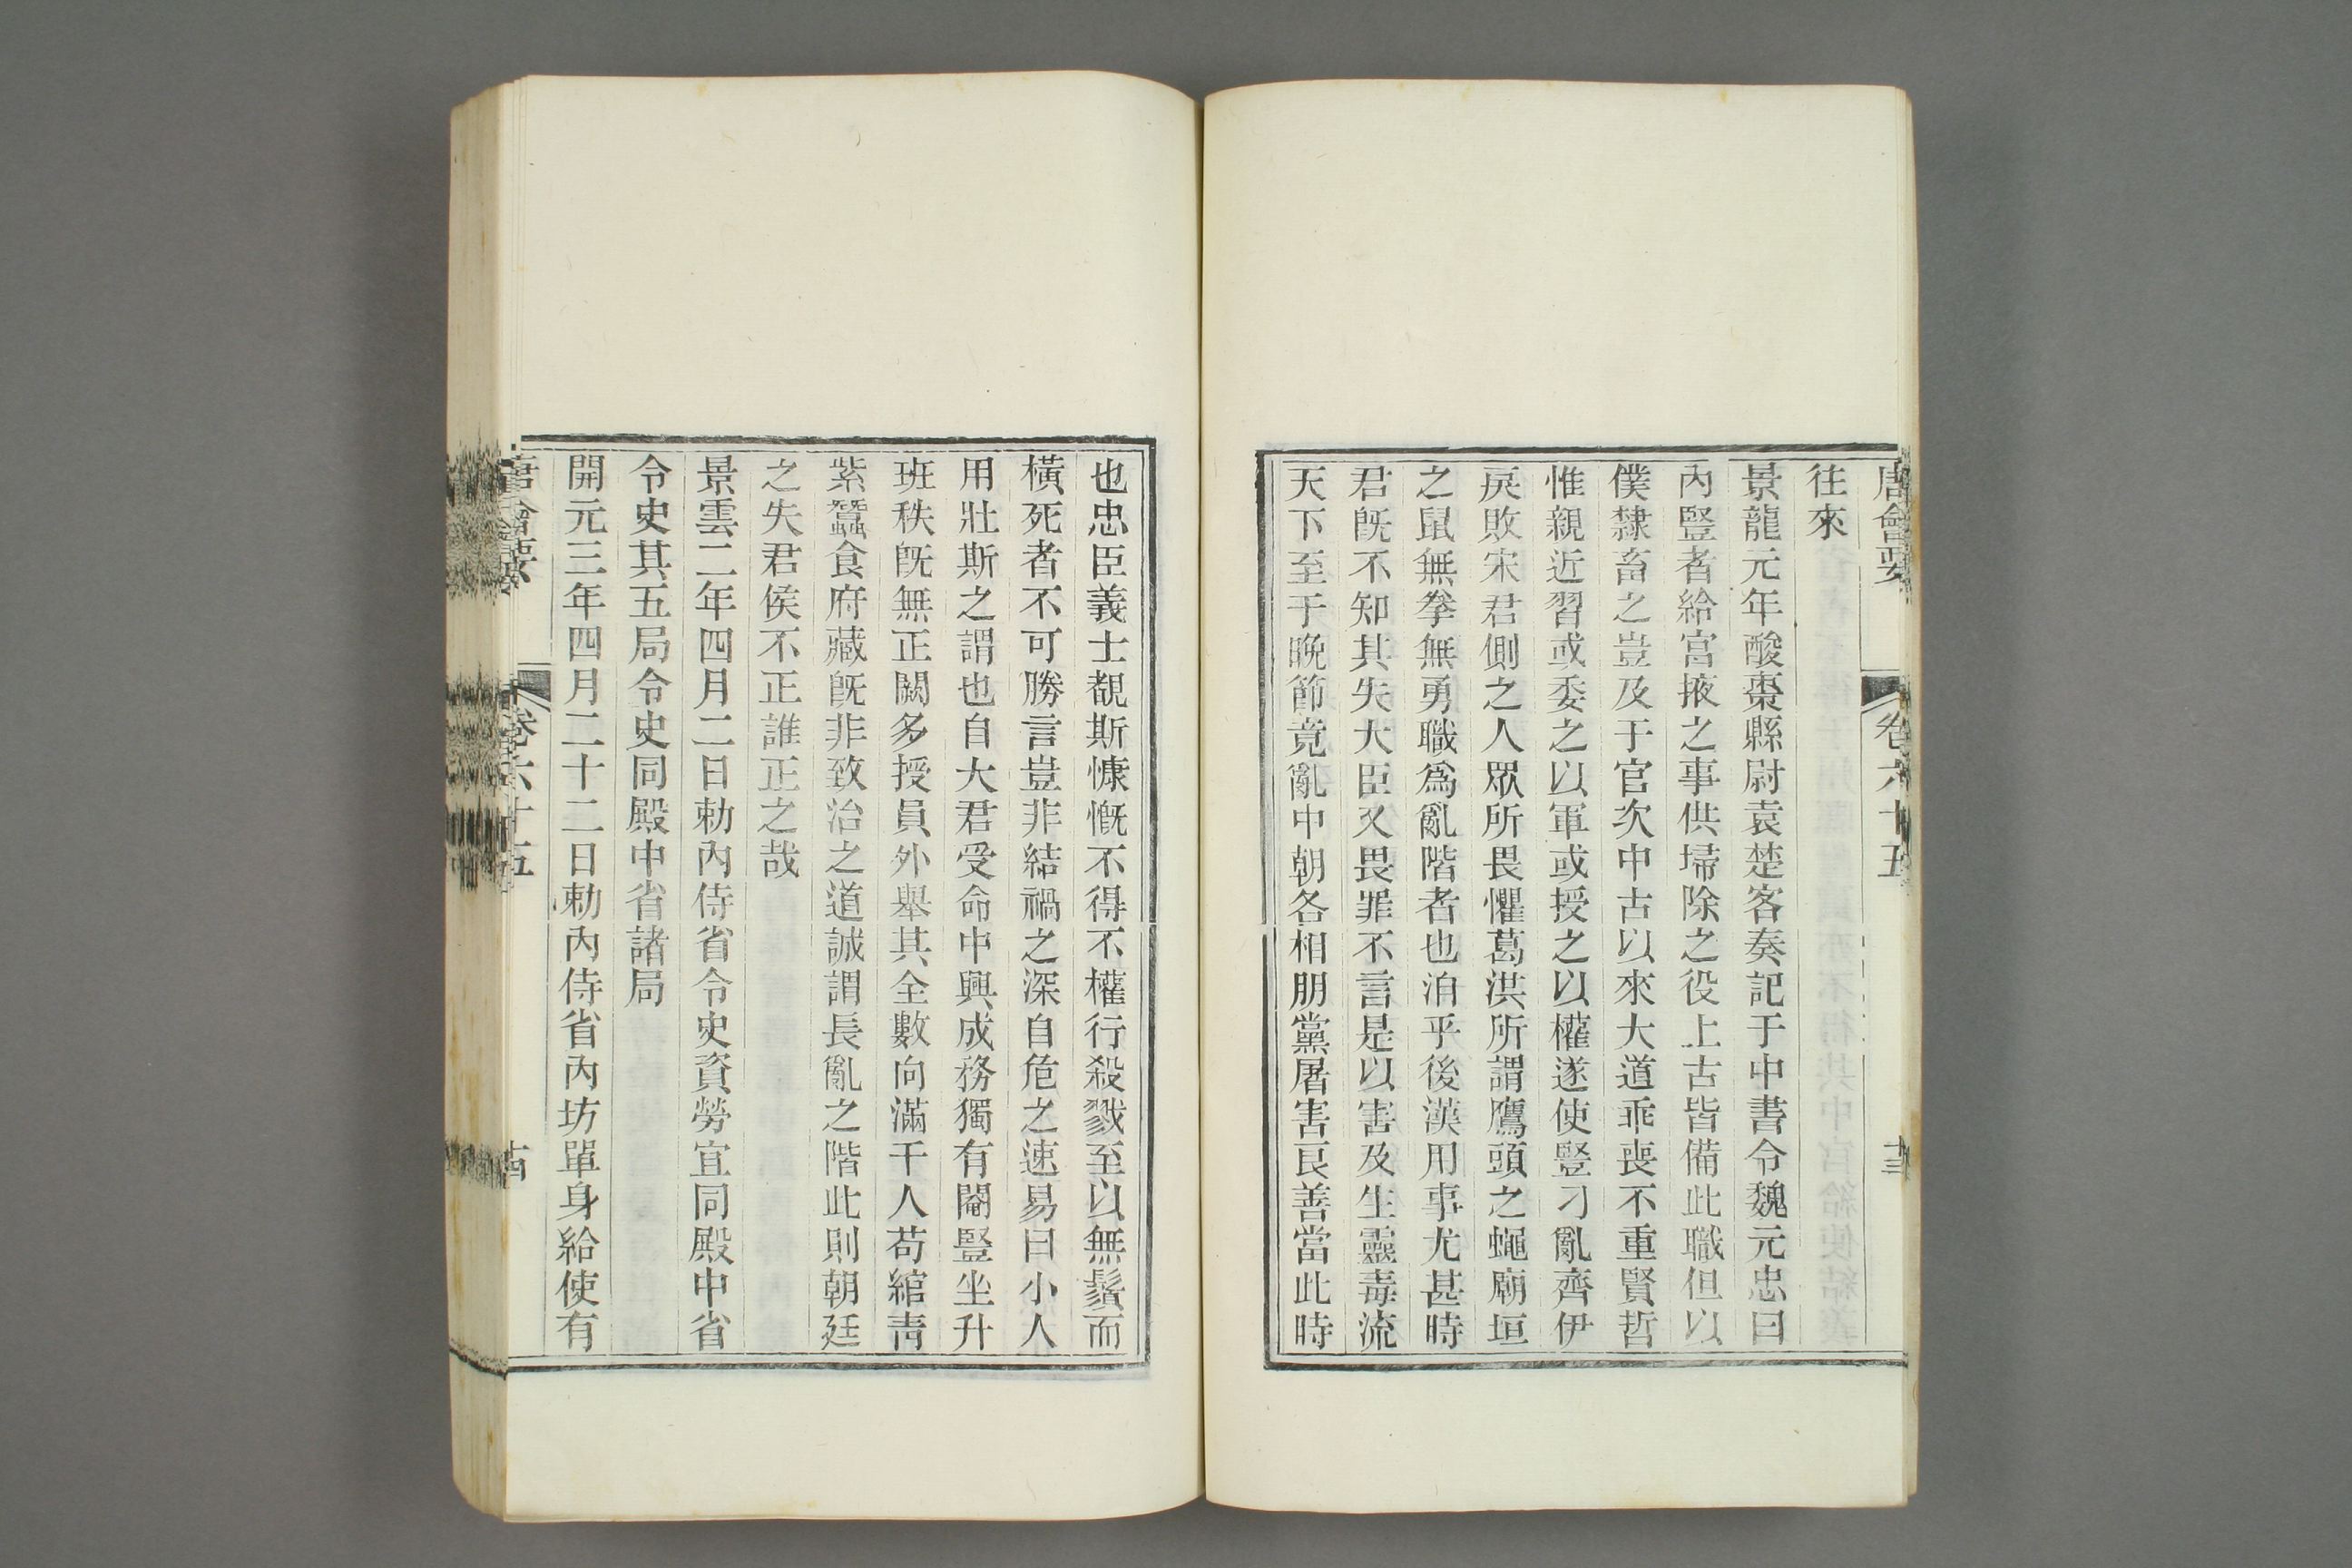 唐會要 卷六十五 十三
往來
景龍元年酸棗縣尉袁楚客奏記于中書令魏元忠曰
內豎者給宮掖之事供埽除之役上古皆備此職但以
僕隸畜之豈及于官次中古以來大道乖喪不重賢哲
惟親近習或委之以軍或授之以權遂使豎刁亂齊伊
戾敗宋君側之人眾所畏懼葛洪所謂鷹頭之蠅廟垣
之鼠無拳無勇職爲亂階者也洎乎後漢用事尤甚時
君旣不知其失大臣又畏罪不言是以害及生靈毒流
天下至于晚節竟亂中朝各相朋黨屠害良善當此時
也忠臣義士覩斯慷慨不得不權行殺戮至以無鬚而
橫死者不可勝言豈非結禍之深自危之速易曰小人
用壯斯之謂也自大君受命中興成務獨有閹豎坐升
班秩旣無正闕多授員外舉其全數向滿千人苟綰靑
紫蠶食府藏旣非致治之道誠謂長亂之階此則朝廷
之失君侯不正誰正之哉
景雲二年四月二日勅內侍省令史資勞宜同殿中省
令史其五局令史同殿中省諸局
開元三年四月二十二日勅內侍省內坊單身給使有
唐會要 卷六十五 十四